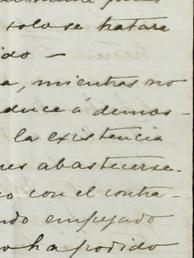 solo se tratara
ido —
a, mientras no
duce á demos-
la existencia
es abastecerse.
o con el contra-
ndo empujado
o ha podido